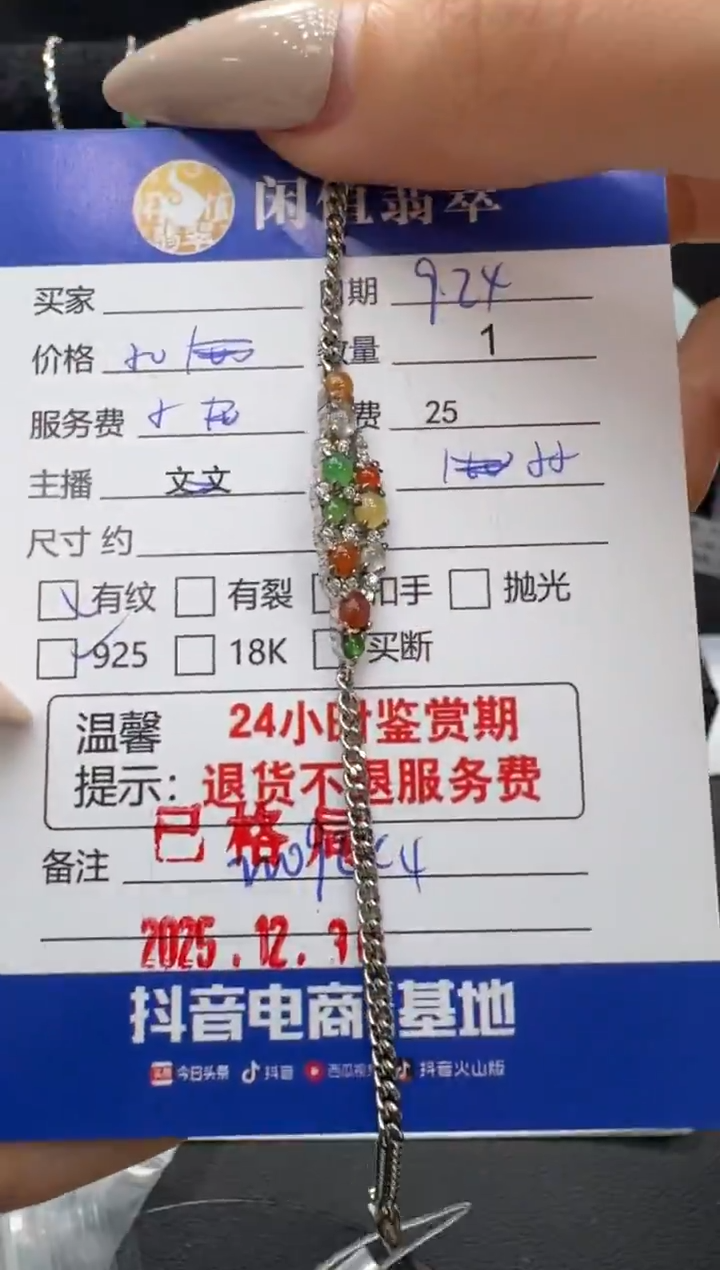 闲值翡翠
买家 日期 9.24
价格 数量 1
服务费 费 25
主播 文文
尺寸 约
有纹 有裂 扣手 抛光
925 18K 买断
温馨 24小时鉴赏期
提示: 退货不退服务费
已格局
备注
2025.12.
抖音电商 基地
今日头条 抖音 西瓜视频 抖音火山版